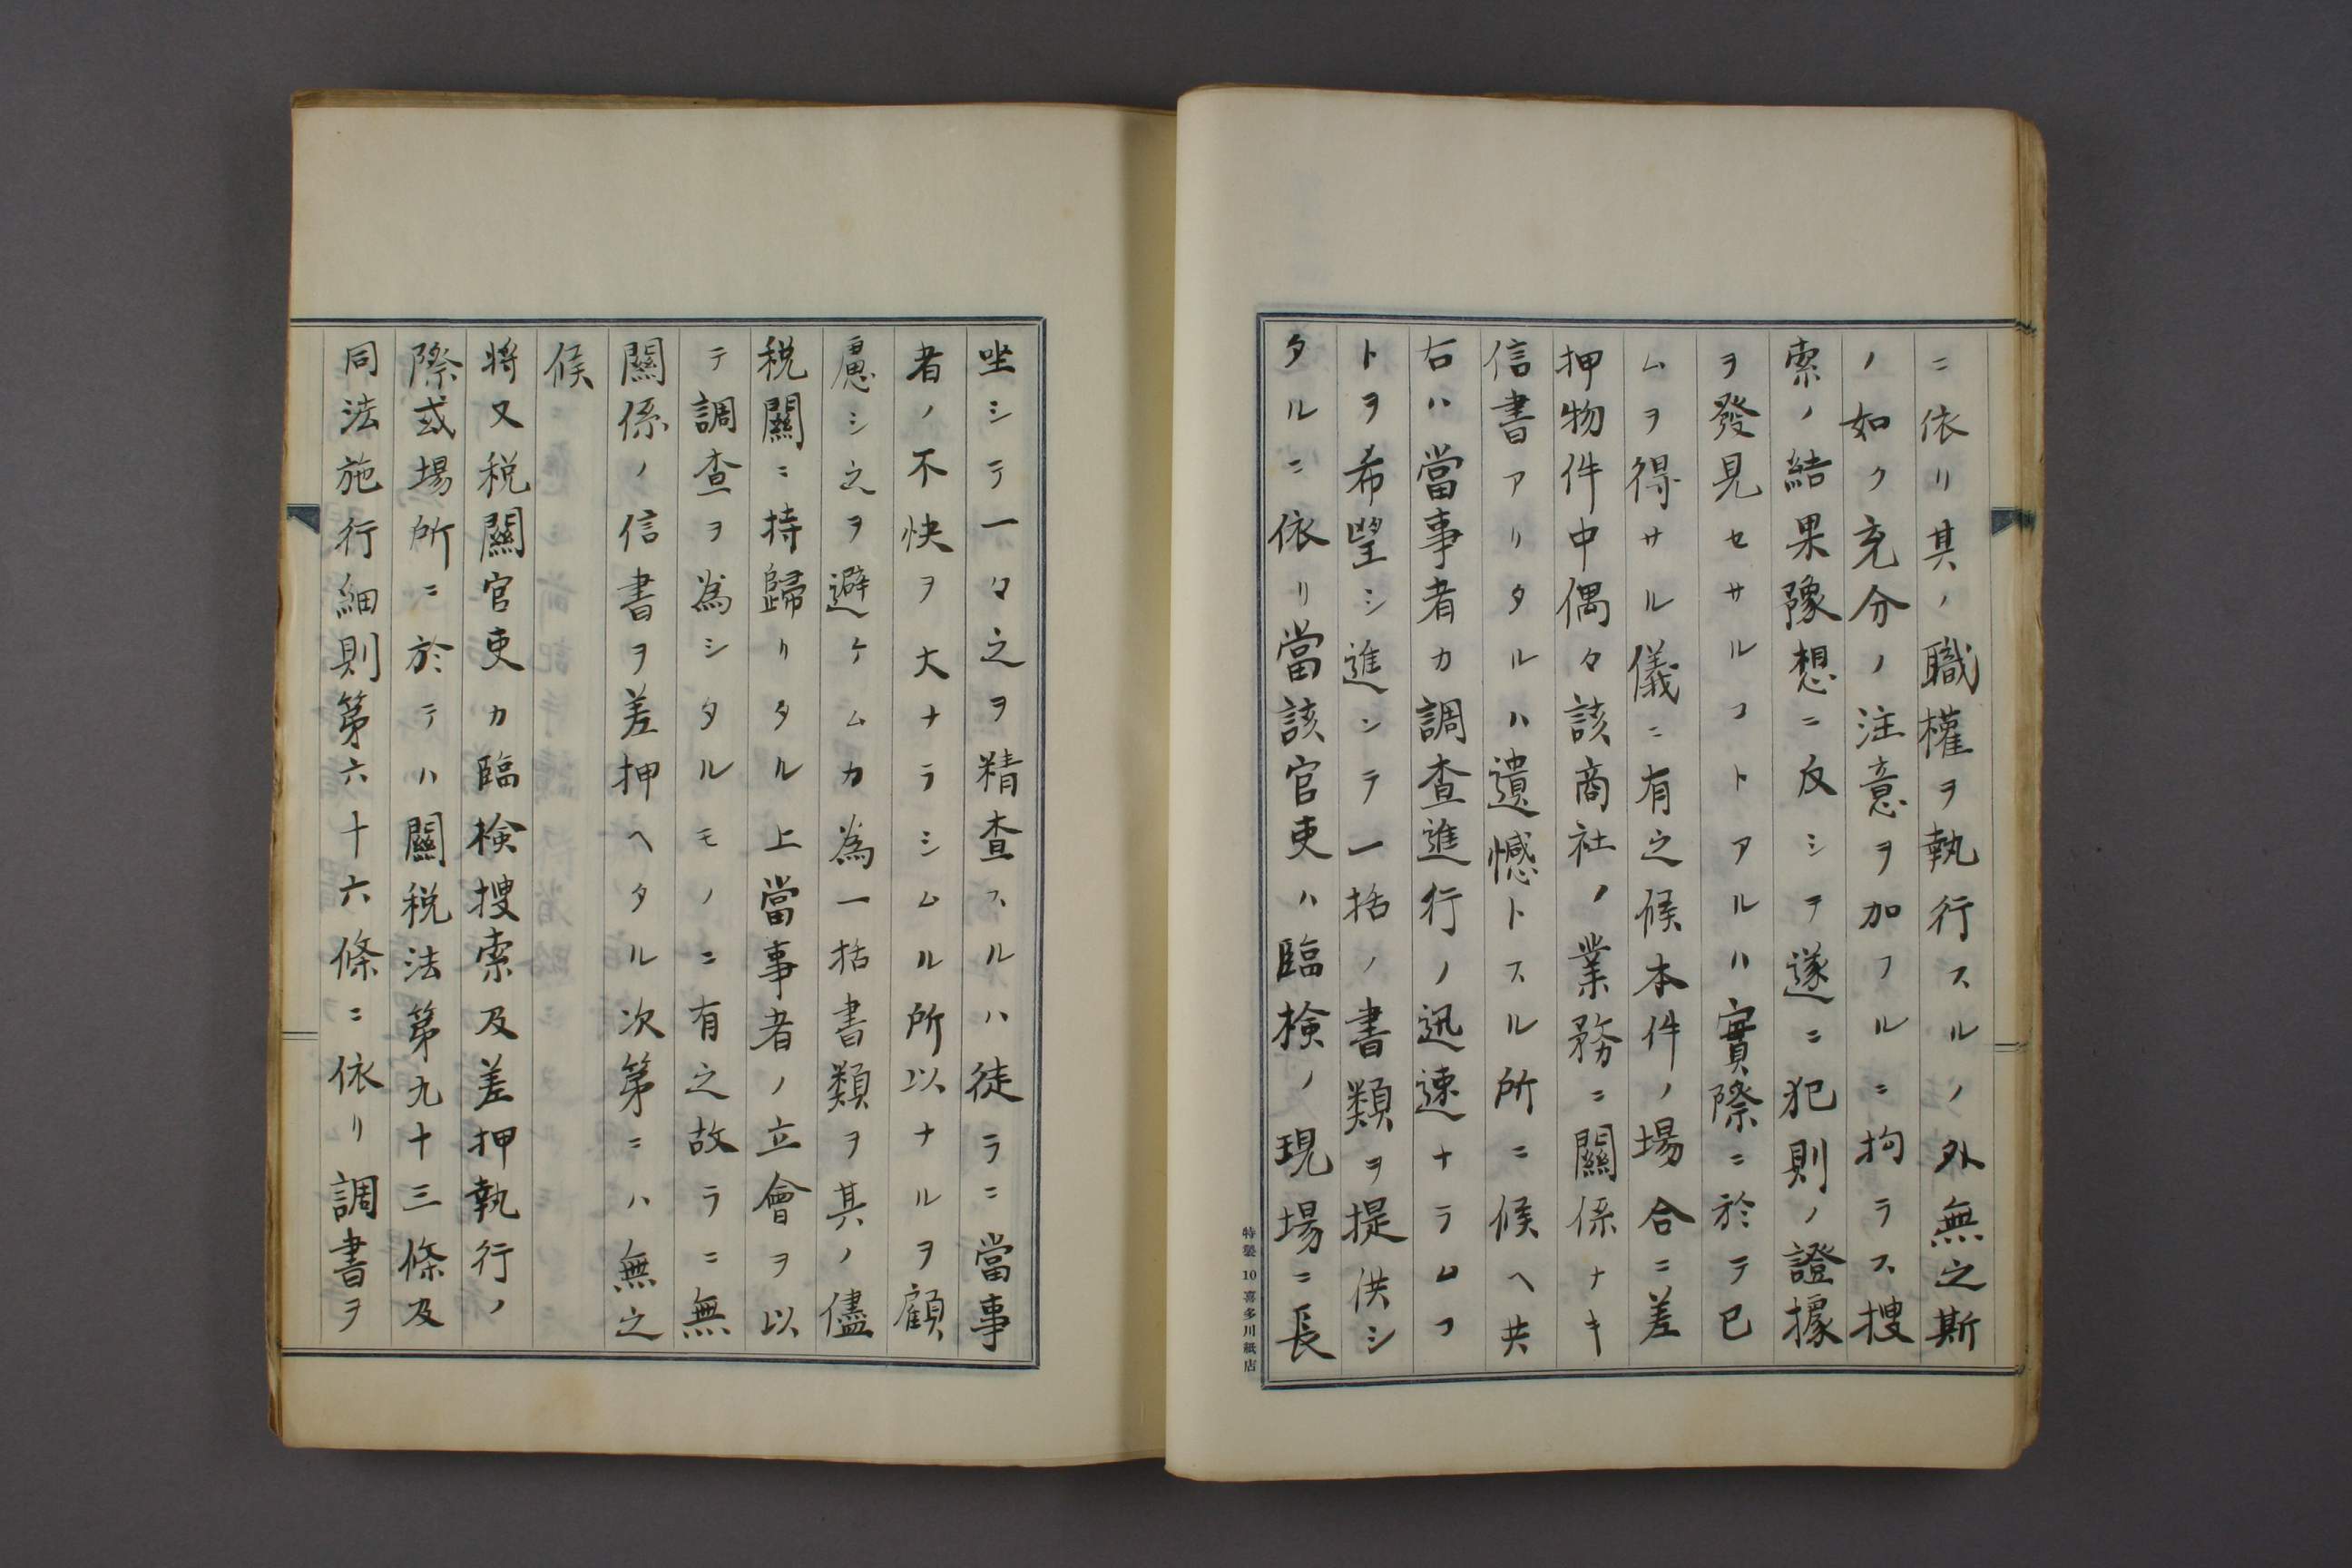 ニ依リ其ノ職權ヲ執行スルノ外無之斯
ノ如ク充分ノ注意ヲ加フルニ拘ラス搜
索ノ結果豫想ニ反シテ遂ニ犯則ノ證據
ヲ發見セサルコトアルハ實際ニ於テ已
ムヲ得サル儀ニ有之候本件ノ場合ニ差
押物件中偶々該商社ノ業務ニ關係ナキ
信書アリタルハ遺憾トスル所ニ候ヘ共
右ハ當事者カ調査進行ノ迅速ナラムコ
トヲ希望シ進ンテ一括ノ書類ヲ提供シ
タルニ依リ當該官吏ハ臨檢ノ現場ニ長
特製10喜多川紙店
坐シテ一々之ヲ精査スルハ徒ラニ當事
者ノ不快ヲ大ナラシムル所以ナルヲ顧
慮シ之ヲ避ケムカ為一括書類ヲ其ノ儘
税關ニ持歸リタル上當事者ノ立會ヲ以
テ調査ヲ為シタルモノニ有之故ラニ無
關係ノ信書ヲ差押ヘタル次第ニハ無之
候
將又税關官吏カ臨檢搜索及差押執行ノ
際或場所ニ於テハ關税法第九十三條及
同法施行細則第六十六條ニ依リ調書ヲ